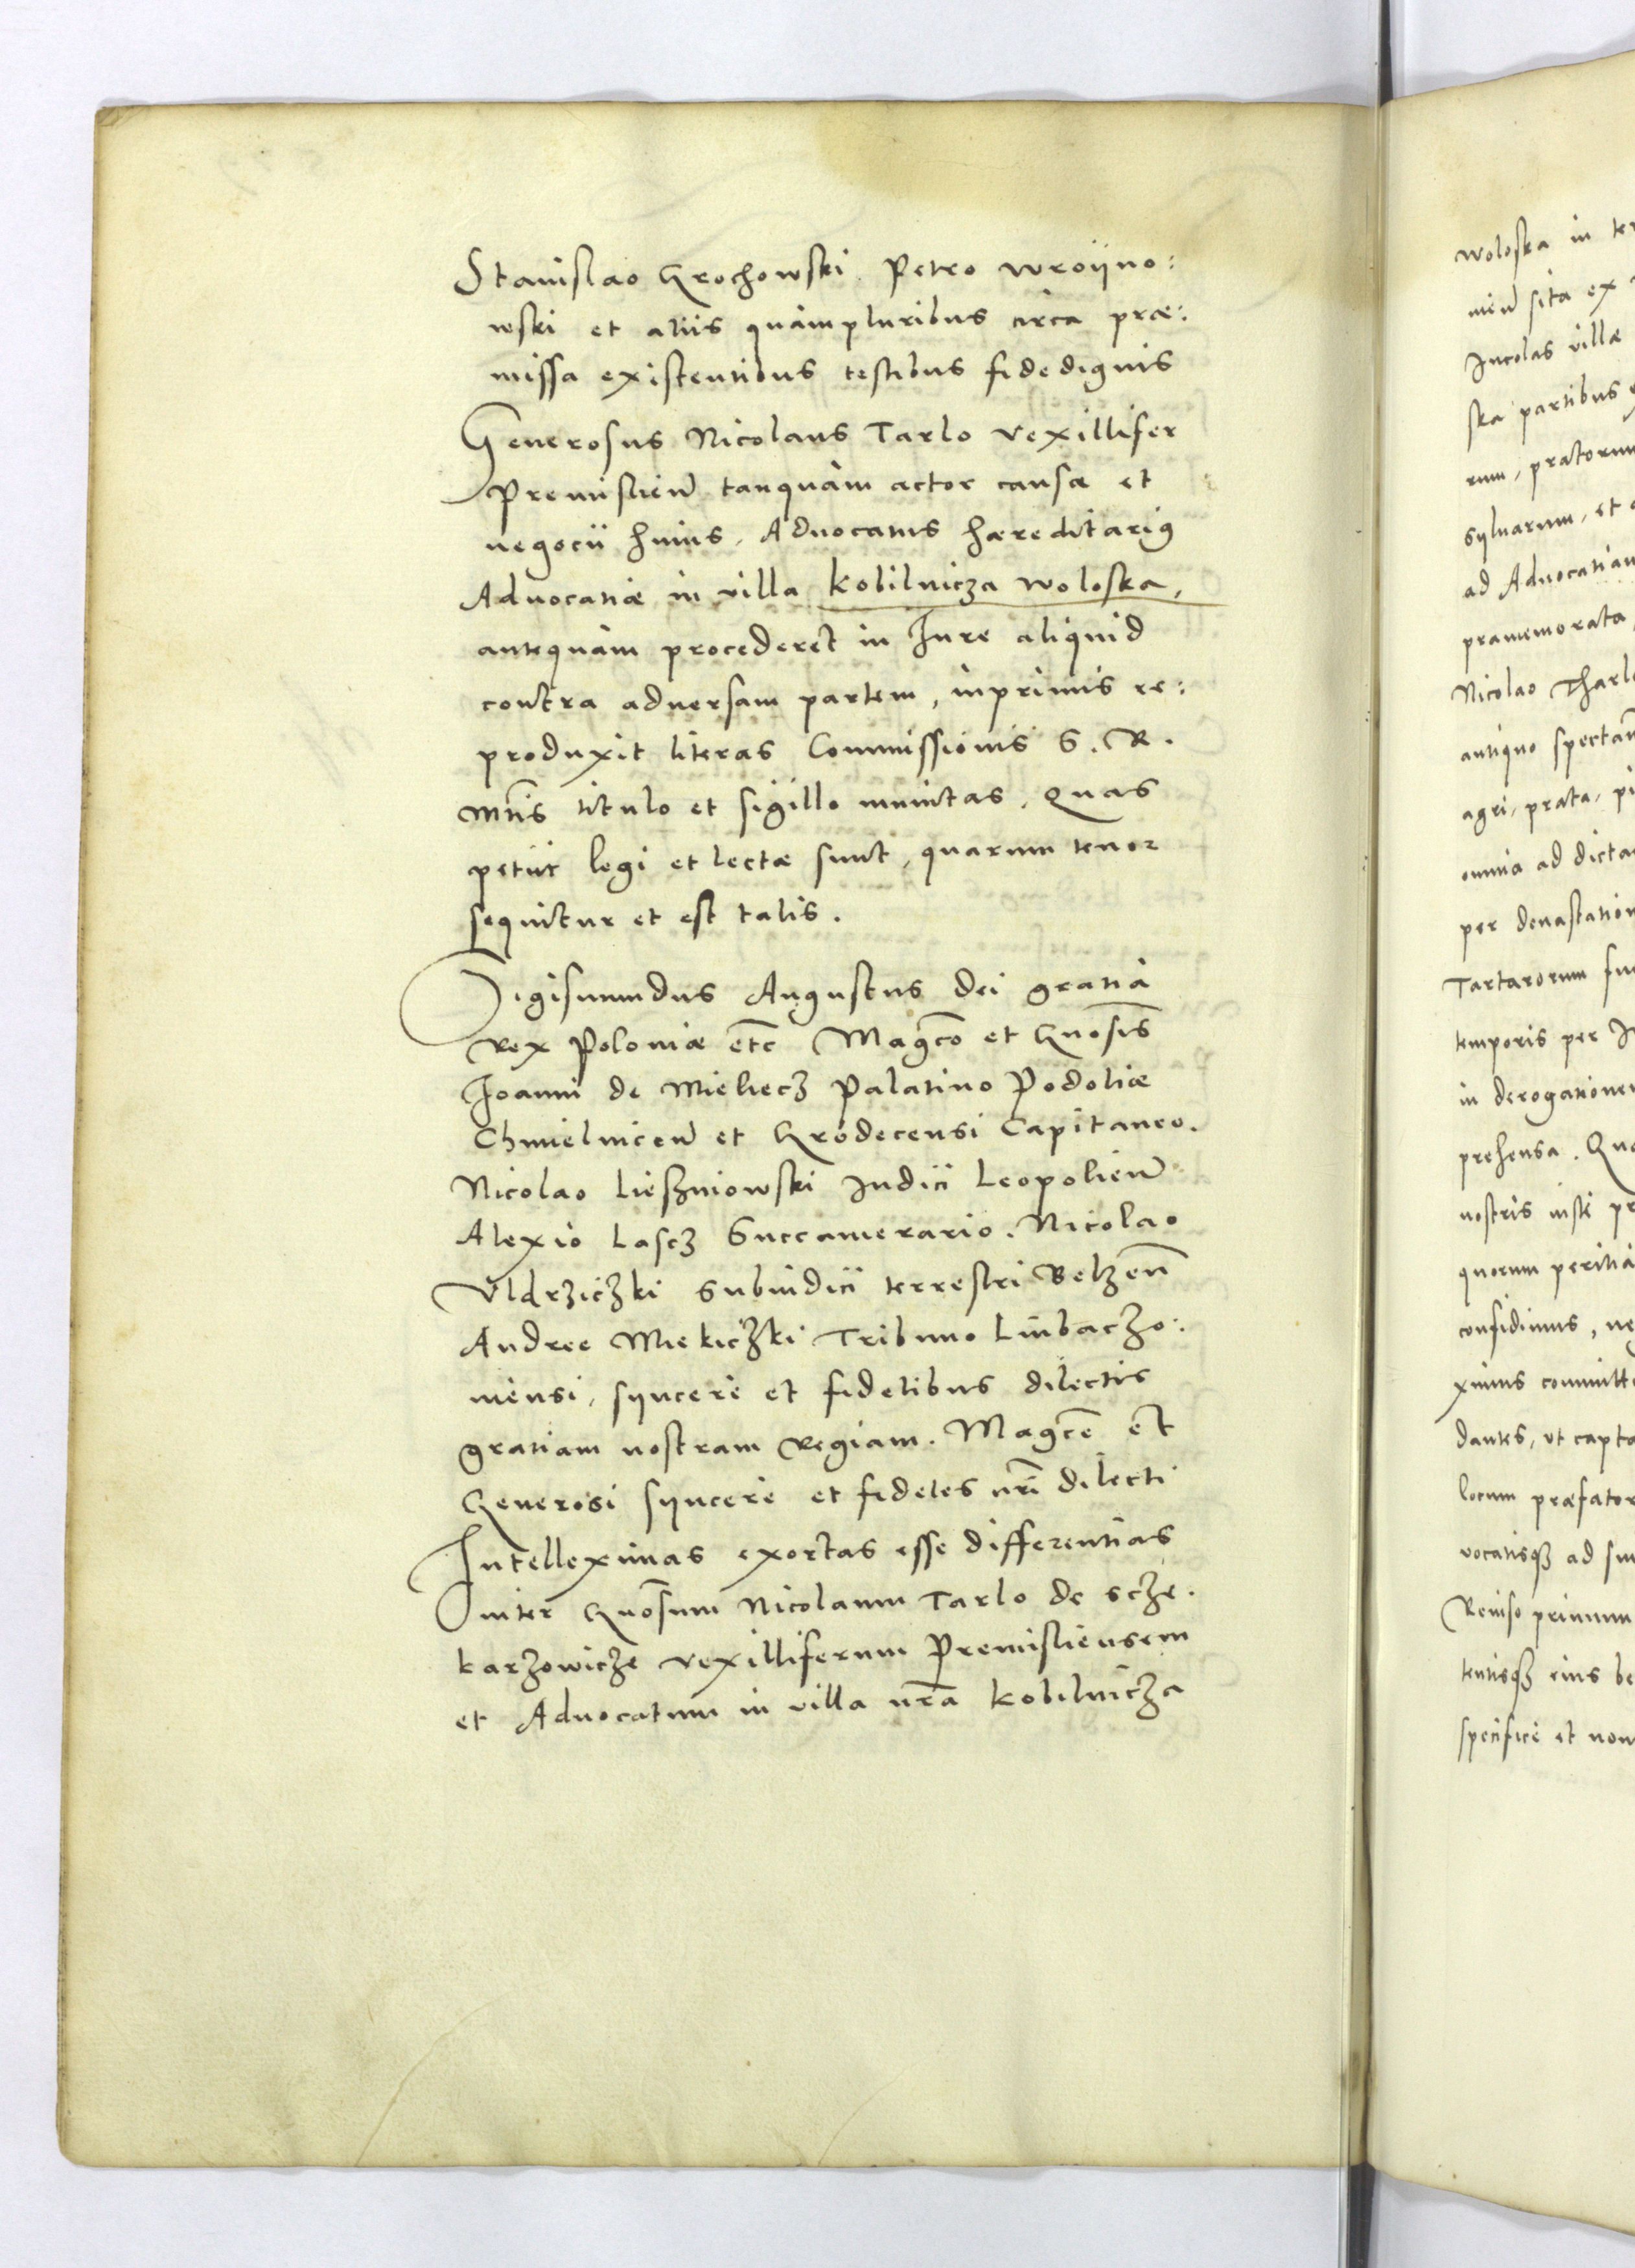 Stanislao Grochowski. Petro Wroijno:
wski et aliis quàmpluribus circa præ:
missa existentibus testibus fidedignis
Generosus Nicolaus Tarlo Vexillifer
Premislien̄ tanquàm actor causæ et
negocii huius, Aduocatus hæreditariꝰ
Aduocatiæ in villa Kobilnicza Woloska,
antequàm procederet in Iure aliquid
contra aduersam partem, inprimis re:
produxit literas Commissionis S. R.
Mt̄is titulo et sigillo munitas. Quas
petiit legi et lectæ sunt, quarum tenor
sequitur et est talis.
Sigismundus Augustus dei gratia
Rex Poloniæ etc̄ Magc̄o et Gnōsis
Ioanni de Mieliecz Palatino Podoliæ
Chmielnicen̄ et Grodecensi Capitaneo.
Nicolao Lieszniowski Iudici Leopolien̄
Alexio Lascz Succamerario. Nicolao
Vldrziczki Subiudici terrestri Belzen̄
Andree Miekiczki Tribuno Liubaczo:
uiensi, syncerè et fidelibus dilectis
gratiam nostram Regiam. Magc̄e et
Generosi syncerè et fideles nr̄i dilecti
Intelleximas exortas esse differentias
inter Gnōsum Nicolaum Tarlo de Scze.
karzowicze Vexilliferum Premisliensem
et Aduocatum in villa nr̄a Kobilnicza
Woloska in
men̄ sita ex
Incolas villæ
ska partibus
rum, pratorum
syluarum, et
ad Aduocatiam
pramemorata,
Nicolao Tharl
antiquo spectan
agri, prata,
omnia ad dicta
per deuastation
Tartarorum
temporis per
in derogationem
prehensa.
nostris iusti
quorum peritia
confidimus,
ximus committ
dantes, vt capta
locum præfator
vocatisqꝫ ad
Reuiso primum
tentisqꝫ eius
specificè et nom